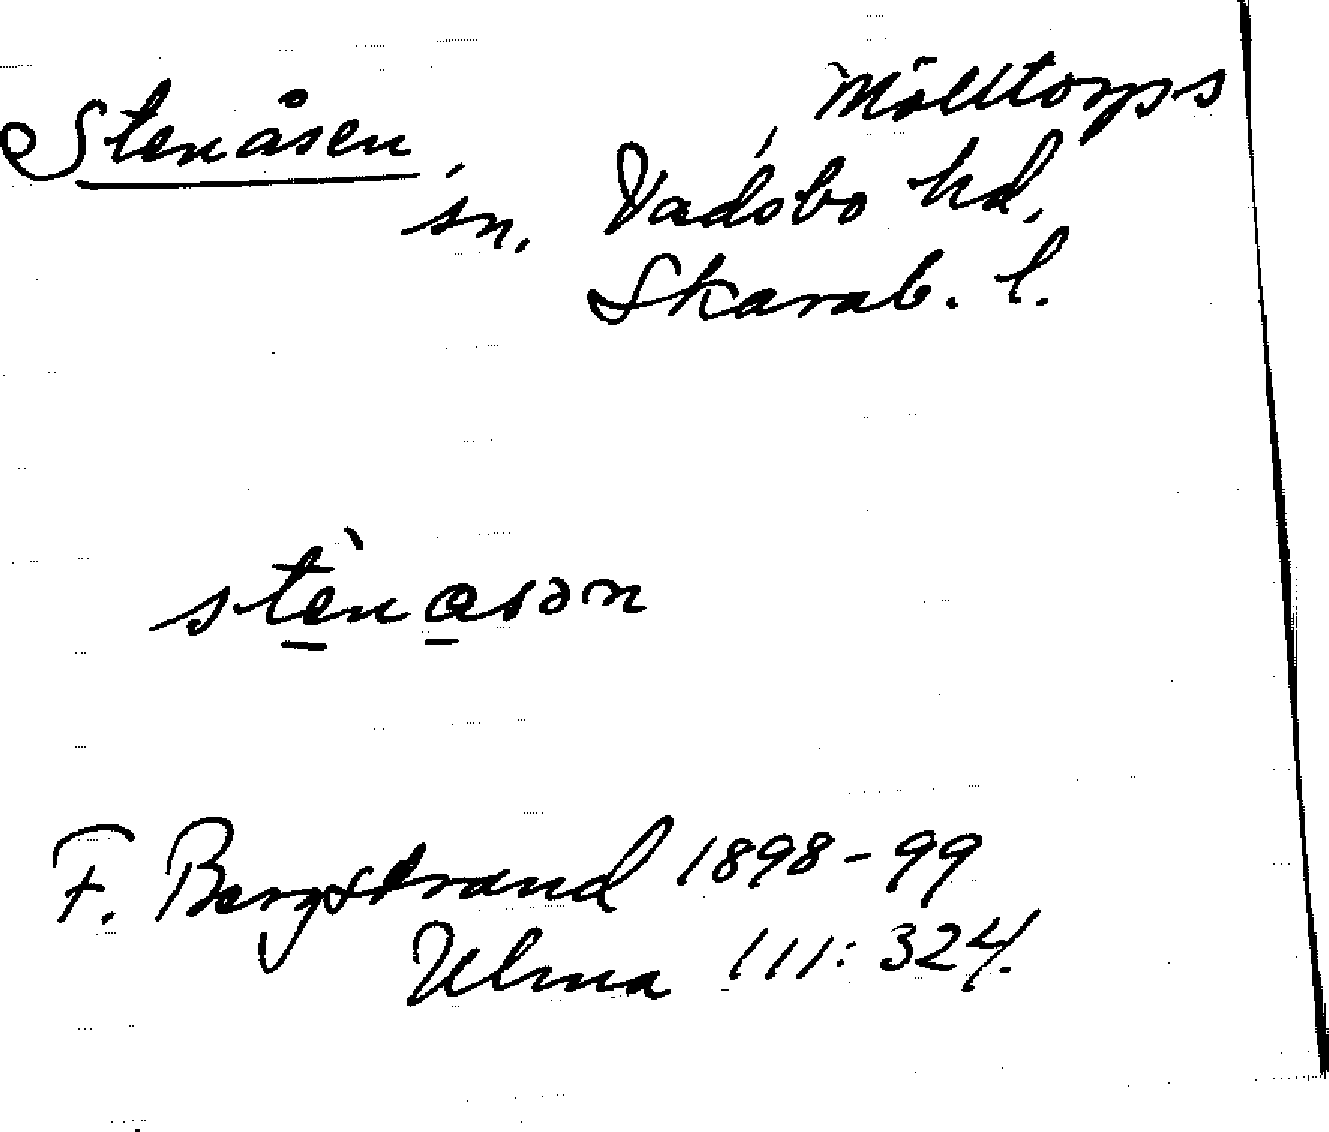 Stenåsen, Mölltorps
sn. Vadsbo hd,
Skarab. l.
stènasən
F. Bergstrand 1898-99
Ulma 111:324.